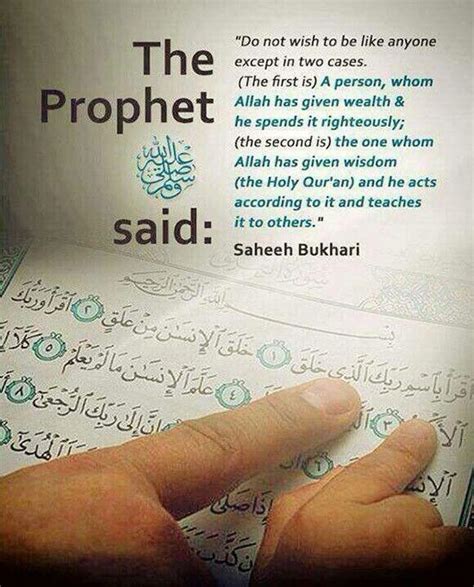 The
Prophet
صلى الله عليه وسلم
said:
"Do not wish to be like anyone
except in two cases.
(The first is) A person, whom
Allah has given wealth &
he spends it righteously;
(the second is) the one whom
Allah has given wisdom
(the Holy Qur'an) and he acts
according to it and teaches
it to others."
Saheeh Bukhari
بِسْمِ ٱللَّهِ ٱلرَّحْمَٰنِ ٱلرَّحِيمِ
قْرَأْ بِٱسْمِ رَبِّكَ ٱلَّذِى خَلَقَ ١ خَلَقَ ٱلْإِنسَٰنَ مِنْ عَلَقٍ ٢ ٱقْرَأْ وَرَبُّكَ
٣ ٤ عَلَّمَ ٱلْإِنسَٰنَ مَا لَمْ يَعْلَمْ ٥ كَلَّآ
٦ إِنَّ إِلَىٰ رَبِّكَ ٱلرُّجْعَىٰٓ ٨
إِذَا صَلَّىٰٓ ٱلْهُدَىٰٓ
إِن كَذَّبَ